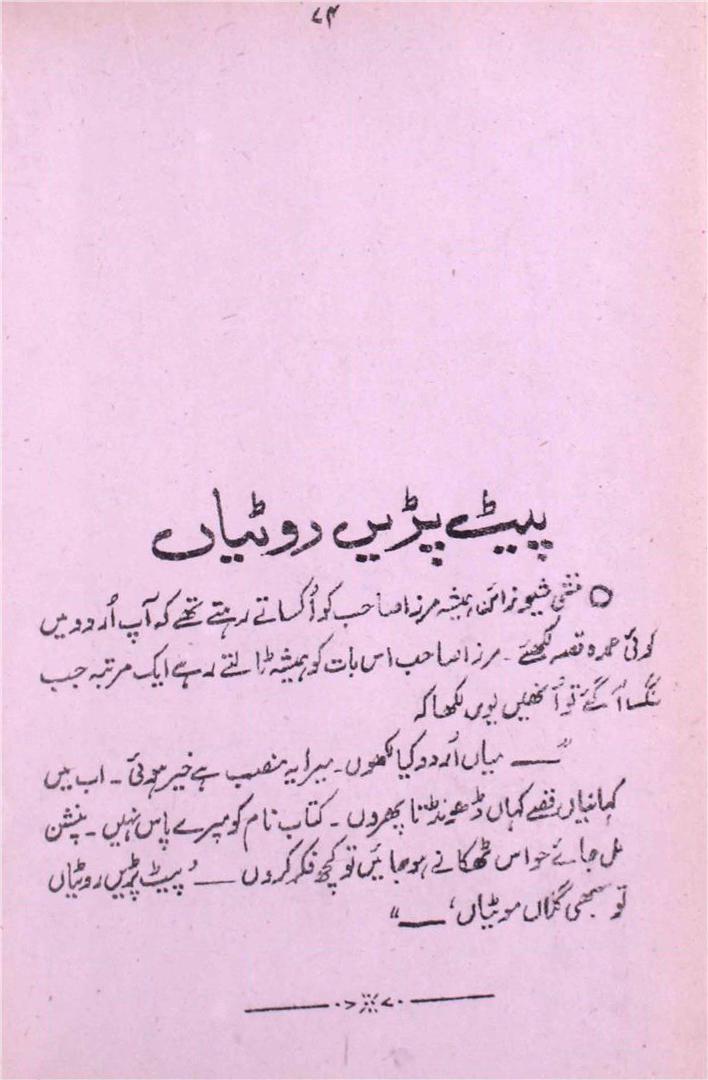 ۷۴
پیٹ پڑیں روٹیاں
منشی شیو نرائن ہمیشہ مرزا صاحب کو اُکساتے رہتے تھے کہ آپ اُردو میں
کوئی عمدہ قصہ لکھئے۔ مرزا صاحب اس بات کو ہمیشہ ٹالتے رہے ایک مرتبہ جب
تنگ آ گئے تو اُنھیں یوں لکھا کہ
"— میاں اُردو کیا لکھوں۔ میرا یہ منصب ہے خیر ہوئی۔ اب میں
کہانیاں قصے کہاں ڈھونڈتا پھروں۔ کتاب نام کو میرے پاس نہیں۔ پنشن
مل جائے حواس ٹھکانے ہو جائیں تو کچھ فکر کروں — 'پیٹ پڑیں روٹیاں
تو سبھی گلاں موٹیاں' —"